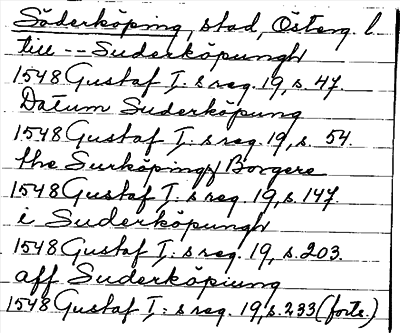 Söderköping, stad, Österg. l.
till -- Suderköpungh
1548 Gustaf I:s reg. 19, s. 47.
Datum Suderköpung
1548 Gustaf I:s reg. 19, s. 54.
the Surköpingx Borgere
1548 Gustaf I:s reg. 19, s. 147.
i Suderköpungh
1548 Gustaf I:s reg. 19, s. 203.
aff Suderköpiung
1548 Gustaf I:s reg. 19, s. 233 (forts.)